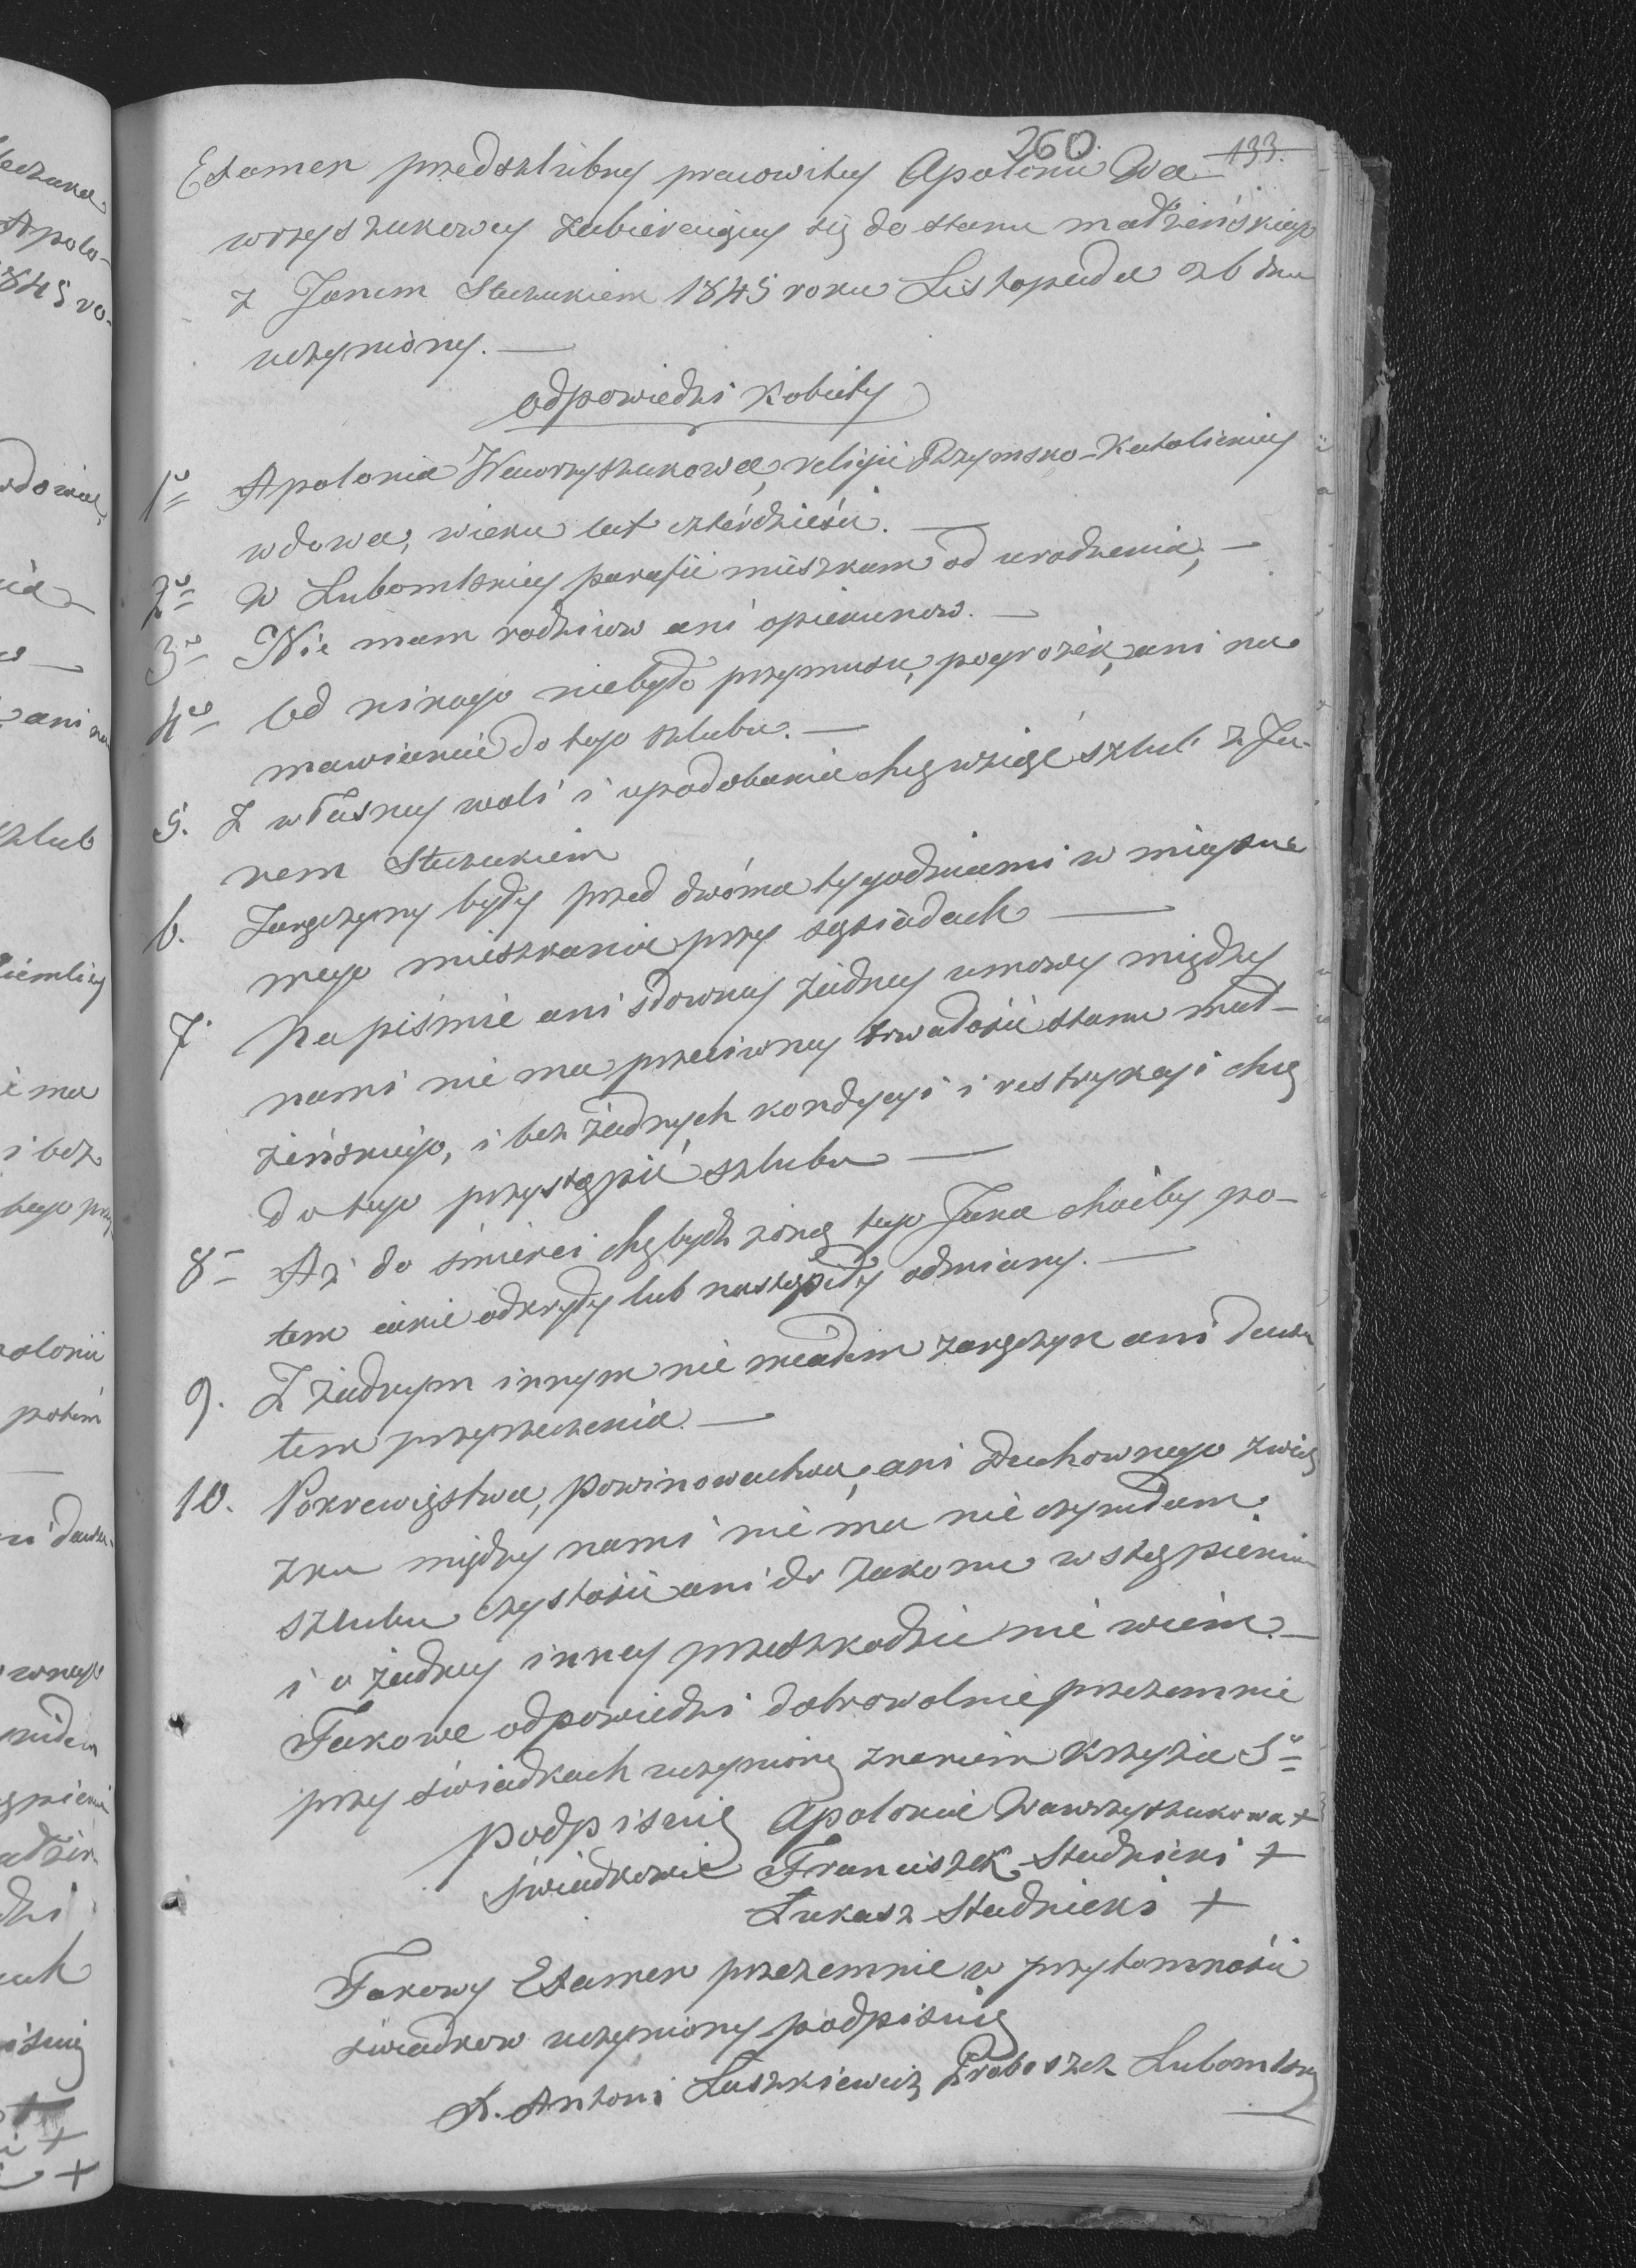 260. 133.
Examen przedszlubny pracowitey Apolonii Wa-
wrzyszukowey zabieraiącey się do stanu małżeńskiego
z Janem Staszukiem 1845 roku Listopada 26 dnia
uczyniony. —
odpowiedzi Kobiety
1o Apolonia Wawrzyszukowa, religii Rzymsko-Katolickiey
wdowa, wieku lat czterdzieści. —
2o W Lubomlskiey parafii mieszkam od urodzenia, —
3o Nie mam rodziców ani opiekunow. —
4o Od nikogo niebyło przymusu, pogrozek, ani na
mawiania do tego szlubu. —
5. Z własney woli i upodobania chcę wziąść szlub z Ja-
nem Staszukiem
6. Zaręczyny były przed dwóma tygodniami w mieyscu
mego mieszkania przy sąsiadach —
7. Na piśmie ani słowney żadney umowy między
nami nie ma przeciwney trwałości stanu mał-
żeńskiego, i bez żadnych kondycyi i restrykcyi chcę
do tego przystąpić szlubu —
8 Aż do śmierci chcę bydź żoną tego Jana choćby po-
tem iakie odkryły lub nastąpiły odmiany. —
9. Z żadnym innym nie miałam zaręczyn ani dawa
łem przyrzeczenia. —
10. Pokrewięstwa, powinowactwa, ani Duchownego zwią
zku między nami nie ma nie czyniłam
szlubu czystości ani do zakonu wstąpienia
i o żadney inney przeszkodzie nie wiem. —
Takowe odpowiedzi dobrowolnie przezemnie
przy świadkach uczynione znakiem Krzyża So
podpisuię Apolonia Wawrzyszukowa +
świadkowie Franciszek Studnicki +
Łukasz Studnicki +
Takowy Examen przezemnie w przytomności
świadkow uczyniony podpisuię
X. Antoni Laszkiewicz Proboszcz Lubomlsky